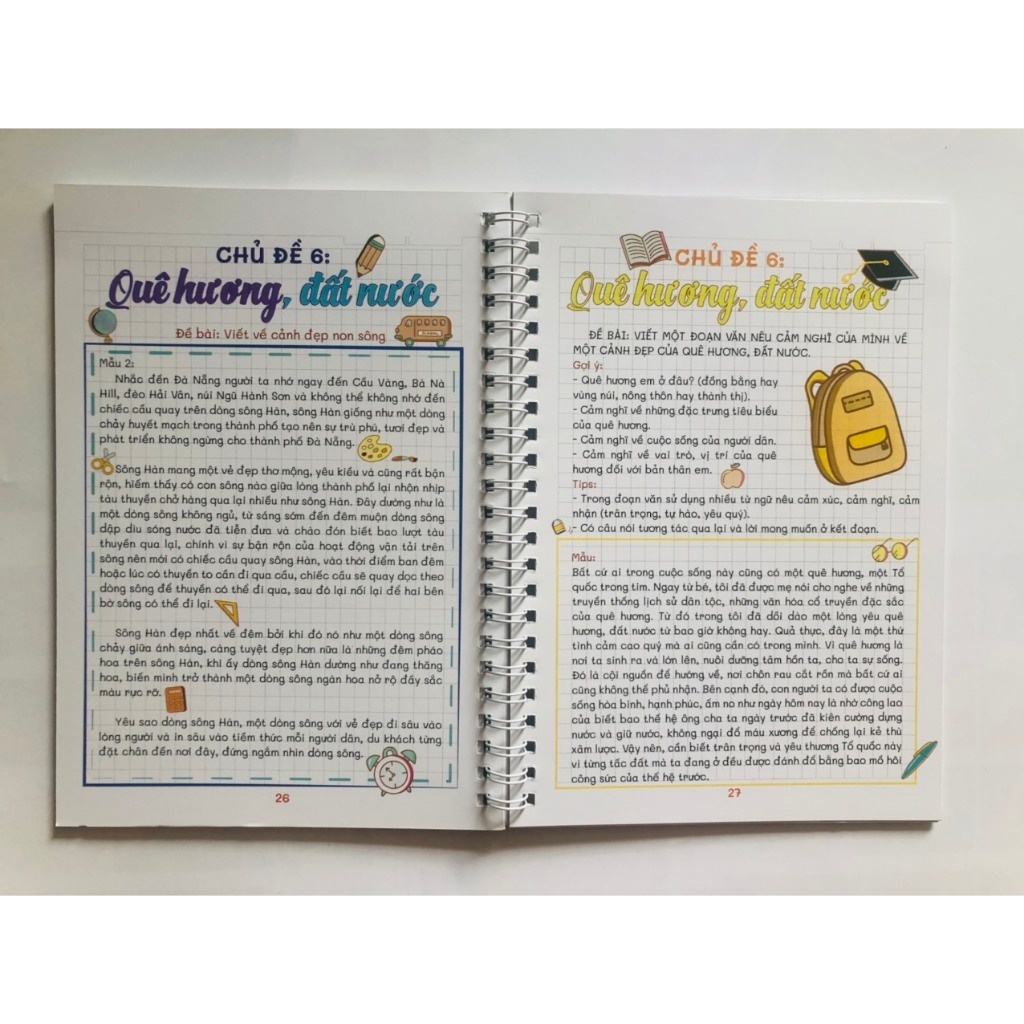 CHỦ ĐỀ 6:
Quê hương, đất nước
Đề bài: Viết về cảnh đẹp non sông
Mẫu 2:
Nhắc đến Đà Nẵng người ta nhớ ngay đến Cầu Vàng, Bà Nà
Hill, đèo Hải Vân, núi Ngũ Hành Sơn và không thể không nhớ đến
chiếc cầu quay trên dòng sông Hàn, sông Hàn giống như một dòng
chảy huyết mạch trong thành phố tạo nên sự trù phú, tươi đẹp và
phát triển không ngừng cho thành phố Đà Nẵng.
Sông Hàn mang một vẻ đẹp thơ mộng, yêu kiều và cũng rất bận
rộn, hiếm thấy có con sông nào giữa lòng thành phố lại nhộn nhịp
tàu thuyền chở hàng qua lại nhiều như sông Hàn. Đây dường như là
một dòng sông không ngủ, từ sáng sớm đến đêm muộn dòng sông
dập dìu sóng nước đã tiễn đưa và chào đón biết bao lượt tàu
thuyền qua lại, chính vì sự bận rộn của hoạt động vận tải trên
sông nên mới có chiếc cầu quay sông Hàn, vào thời điểm ban đêm
hoặc lúc có thuyền to cần đi qua cầu, chiếc cầu sẽ quay dọc theo
dòng sông để thuyền có thể đi qua, sau đó lại nối lại để hai bên
bờ sông có thể đi lại.
Sông Hàn đẹp nhất về đêm bởi khi đó nó như một dòng sông
chảy giữa ánh sáng, càng tuyệt đẹp hơn nữa là những đêm pháo
hoa trên sông Hàn, khi ấy dòng sông Hàn dường như đang thăng
hoa, biến mình trở thành một dòng sông ngàn hoa nở rộ đầy sắc
màu rực rỡ.
Yêu sao dòng sông Hàn, một dòng sông với vẻ đẹp đi sâu vào
lòng người và in sâu vào tiềm thức mỗi người dân, du khách từng
đặt chân đến nơi đây, đứng ngắm nhìn dòng sông.
26
CHỦ ĐỀ 6:
Quê hương, đất nước
ĐỀ BÀI: VIẾT MỘT ĐOẠN VĂN NÊU CẢM NGHĨ CỦA MÌNH VỀ
MỘT CẢNH ĐẸP CỦA QUÊ HƯƠNG, ĐẤT NƯỚC.
Gợi ý:
- Quê hương em ở đâu? (đồng bằng hay
vùng núi, nông thôn hay thành thị).
- Cảm nghĩ về những đặc trưng tiêu biểu
của quê hương.
- Cảm nghĩ về cuộc sống của người dân.
- Cảm nghĩ về vai trò, vị trí của quê
hương đối với bản thân em.
Tips:
- Trong đoạn văn sử dụng nhiều từ ngữ nêu cảm xúc, cảm nghĩ, cảm
nhận (trân trọng, tự hào, yêu quý).
- Có câu nói tương tác qua lại và lời mong muốn ở kết đoạn.
Mẫu:
Bất cứ ai trong cuộc sống này cũng có một quê hương, một Tổ
quốc trong tim. Ngay từ bé, tôi đã được mẹ nói cho nghe về những
truyền thống lịch sử dân tộc, những văn hóa cổ truyền đặc sắc
của quê hương. Từ đó trong tôi đã dồi dào một lòng yêu quê
hương, đất nước từ bao giờ không hay. Quả thực, đây là một thứ
tình cảm cao quý mà ai cũng cần có trong mình. Vì quê hương là
nơi ta sinh ra và lớn lên, nuôi dưỡng tâm hồn ta, cho ta sự sống.
Đó là cội nguồn để hướng về, nơi chôn rau cắt rốn mà bất cứ ai
cũng không thể phủ nhận. Bên cạnh đó, con người ta có được cuộc
sống hòa bình, hạnh phúc, ấm no như ngày hôm nay là nhờ công lao
của biết bao thế hệ ông cha ta ngày trước đã kiên cường dựng
nước và giữ nước, không ngại đổ máu xương để chống lại kẻ thù
xâm lược. Vậy nên, cần biết trân trọng và yêu thương Tổ quốc này
vì từng tấc đất mà ta đang ở đều được đánh đổ bằng bao mồ hôi
công sức của thế hệ trước.
27